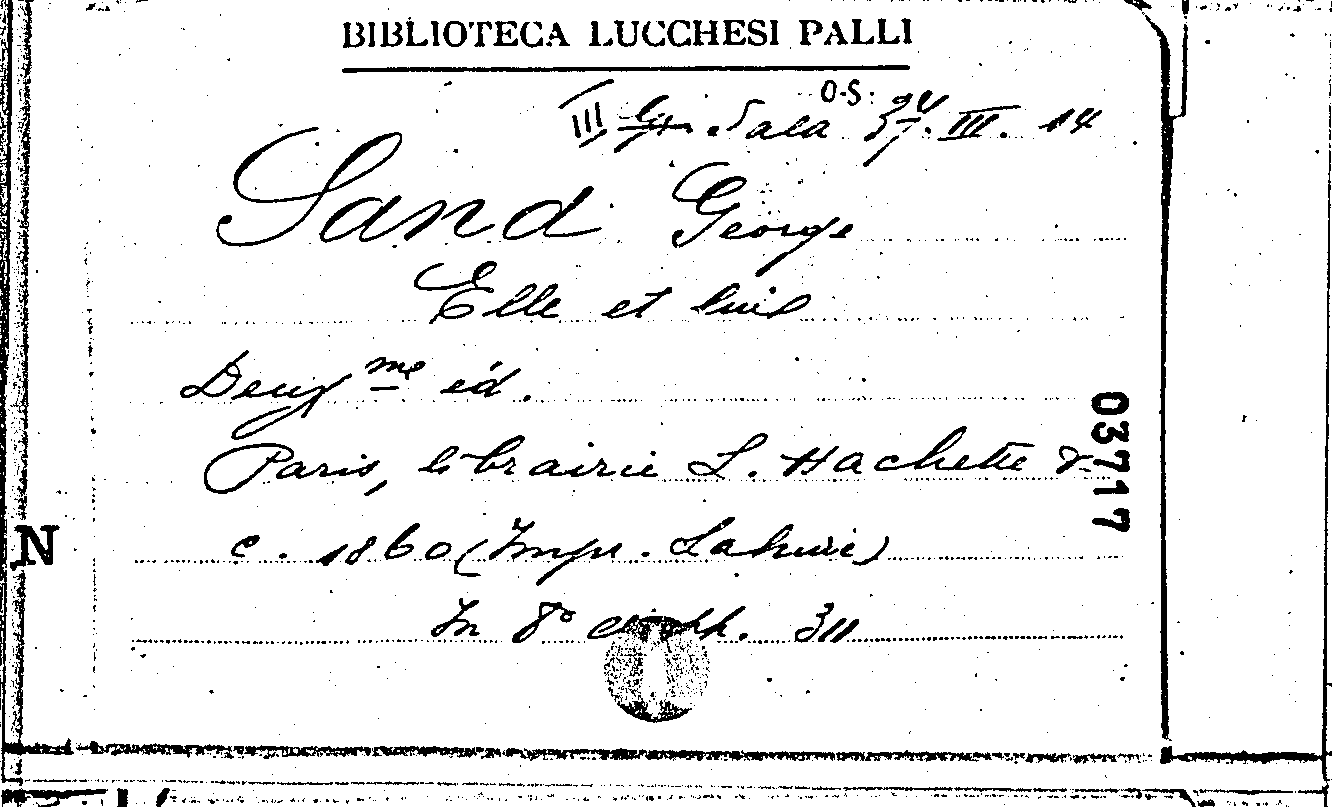 BIBLIOTECA LUCCHESI PALLI
O.S.
III Sala 37. III. 14
Sand George
Elle et lui
Deux me éd.
Paris, librairie L. Hachette &
c. 1860 (Impr. Lahure)
In 8° di pp. 311
03717
N